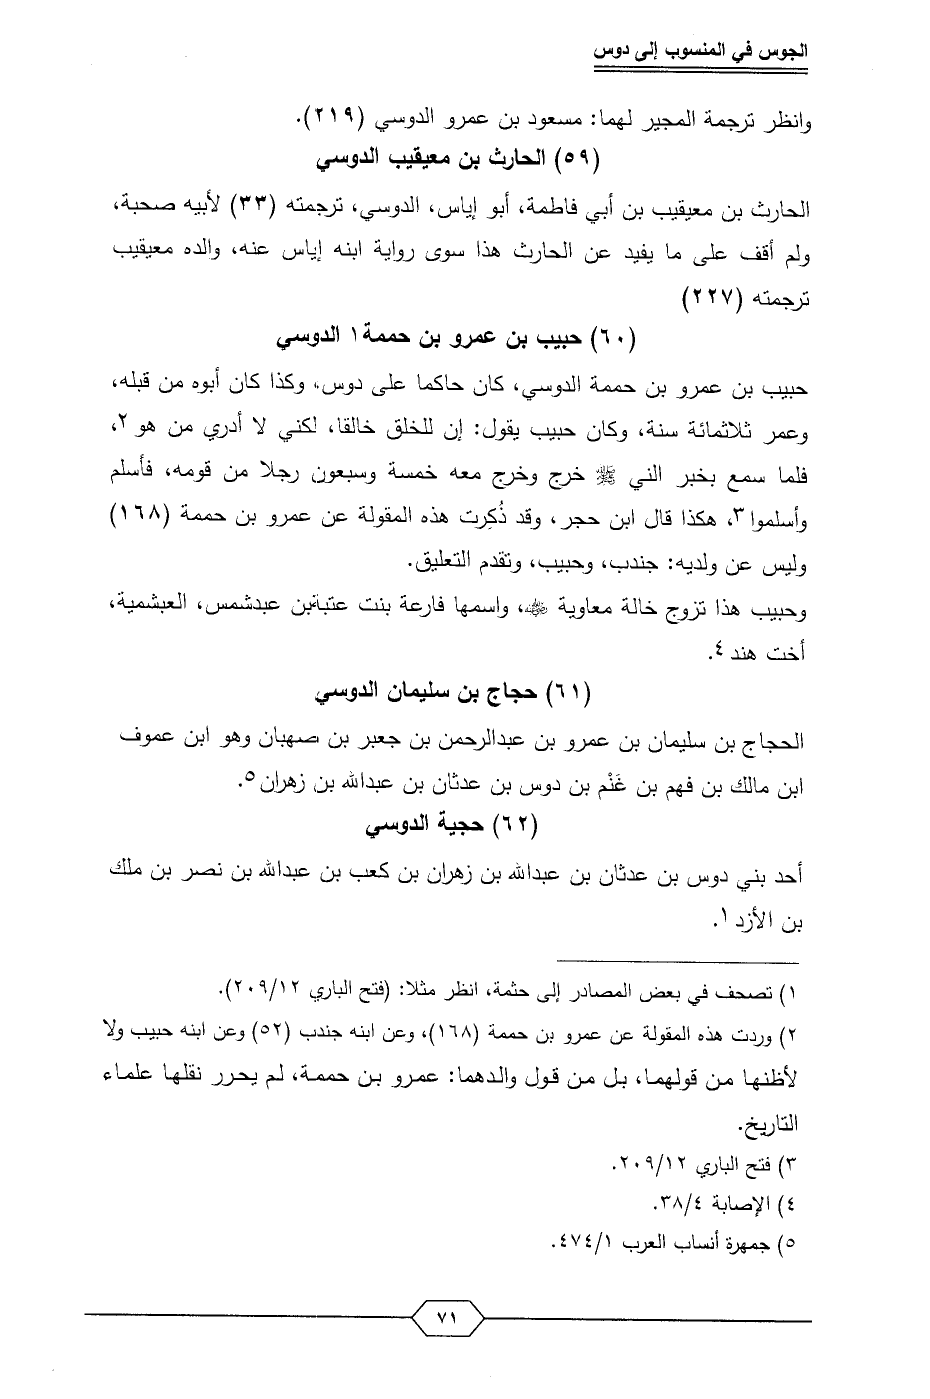 الجوس في المنسوب إلى دوس
وانظر ترجمة المجير لهما: مسعود بن عمرو الدوسي (٢١٩).
(٥٩) الحارث بن معيقيب الدوسي
الحارث بن معيقيب بن أبي فاطمة، أبو إياس، الدوسي، ترجمته (٣٣) لأبيه صحبة،
ولم أقف على ما يفيد عن الحارث هذا سوى رواية ابنه إياس عنه، والده معيقيب
ترجمته (٢٢٧)
(٦٠) حبيب بن عمرو بن حممة١ الدوسي
حبيب بن عمرو بن حممة الدوسي، كان حاكما على دوس، وكذا كان أبوه من قبله،
وعمر ثلاثمائة سنة، وكان حبيب يقول: إن للخلق خالقا، لكني لا أدري من هو ٢،
فلما سمع بخبر الني ﷺ خرج وخرج معه خمسة وسبعون رجلا من قومه، فأسلم
وأسلموا ٣، هكذا قال ابن حجر، وقد ذُكِرت هذه المقولة عن عمرو بن حممة (١٦٨)
وليس عن ولديه: جندب، وحبيب، وتقدم التعليق.
وحبيب هذا تزوج خالة معاوية ﷺ، واسمها فارعة بنت عتبةبن عبدشمس، العبشمية،
أخت هند ٤.
(٦١) حجاج بن سليمان الدوسي
الحجاج بن سليمان بن عمرو بن عبدالرحمن بن جعبر بن صهبان وهو ابن عموف
ابن مالك بن فهم بن غَنْم بن دوس بن عدثان بن عبدالله بن زهران ٥.
(٦٢) حجية الدوسي
أحد بني دوس بن عدثان بن عبدالله بن زهران بن كعب بن عبدالله بن نصر بن ملك
بن الأزد ١.
١) تصحف في بعض المصادر إلى حثمة، انظر مثلا: (فتح الباري ٢٠٩/١٢).
٢) وردت هذه المقولة عن عمرو بن حممة (١٦٨)، وعن ابنه جندب (٥٢) وعن ابنه حبيب ولا
لأظنها من قولهما، بل من قول والدهما: عمرو بن حممة، لم يحرر نقلها علماء
التاريخ.
٣) فتح الباري ٢٠٩/١٢.
٤) الإصابة ٣٨/٤.
٥) جمهرة أنساب العرب ٤٧٤/١.
٧١